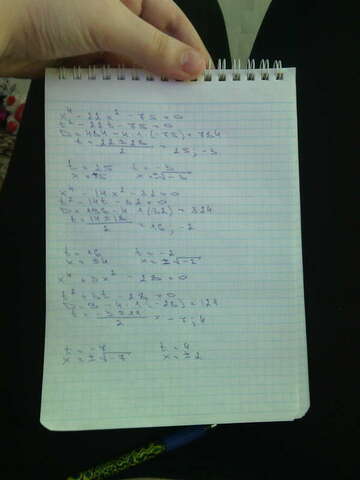 x⁴ - 22x² - 75 = 0
t² - 22t - 75 = 0
D = 484 - 4·1·(-75) = 784
t = (22 ± 28)/2 = 25; -3
t = 25 t = -3
x = ±5 x = ±√-3
x⁴ - 14x² - 32 = 0
t² - 14t - 32 = 0
D = 196 - 4·1·(-32) = 324
t = (14 ± 18)/2 = 16; -2
t = 16 t = -2
x = ±4 x = ±√-2
x⁴ + 3x² - 28 = 0
t² + 3t - 28 = 0
D = 9 - 4·1·(-28) = 121
t = (-3 ± 11)/2 = -7; 4
t = -7 t = 4
x = ±√-7 x = ±2